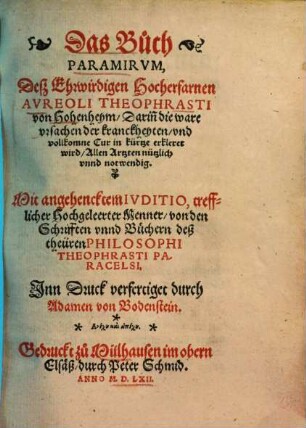 Das Bůch
PARAMIRVM,
Deß Ehrwirdigen Hocherfarnen
AVREOLI THEOPHRASTI
von Hohenheym / Dariñ die ware
vrsachen der kranckheyten / vnd
vollkomne Cur in kürtze erkleret
wird / Allen Artzten nützlich
vnnd notwendig.
Mit angehencktem IVDITIO, treff-
licher Hochgeleerter Menner / von den
Schrifften vnnd Büchern deß
theüren PHILOSOPHI
THEOPHRASTI PA-
RACELSI.
Inn Druck verfertiget durch
Adamen von Bodenstein.
Gedruckt zů Müllhausen im obern
Elsäß / durch Peter Schmid.
ANNO M. D. LXII.